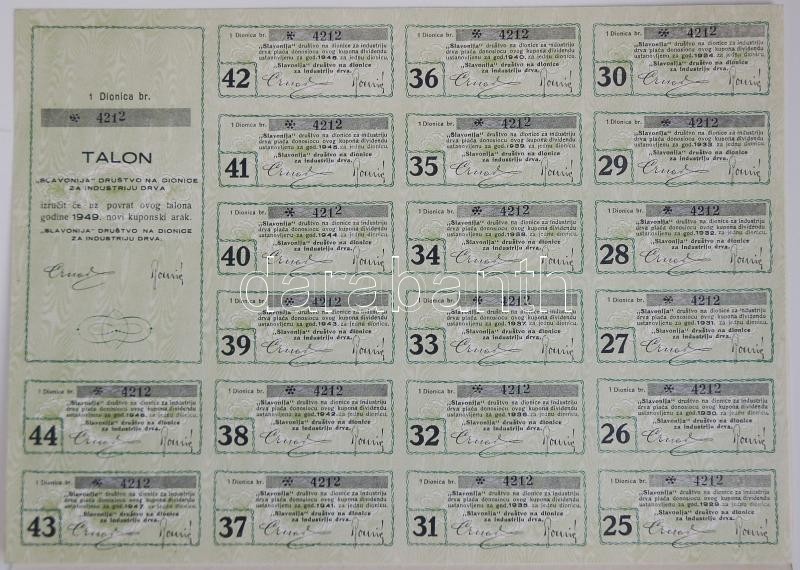 1 Dionica br.
※ 4212
TALON
„SLAVONIJA“ DRUŠTVO NA DIONICE
ZA INDUSTRIJU DRVA
izručit će uz povrat ovog talona
godine 1949. novi kuponski arak.
„SLAVONIJA“ DRUŠTVO NA DIONICE
ZA INDUSTRIJU DRVA.
1 Dionica br. ※ 4212
„Slavonija“ društvo na dionice za industriju
drva plaća donosiocu ovog kupona dividendu
ustanovljenu za god. 1946. za jednu dionicu.
„Slavonija“ društvo na dionice
za industriju drva.
42
1 Dionica br. ※ 4212
„Slavonija“ društvo na dionice za industriju
drva plaća donosiocu ovog kupona dividendu
ustanovljenu za god. 1940. za jednu dionicu.
„Slavonija“ društvo na dionice
za industriju drva.
36
1 Dionica br. ※ 4212
„Slavonija“ društvo na dionice za industriju
drva plaća donosiocu ovog kupona dividendu
ustanovljenu za god. 1934. za jednu dionicu.
„Slavonija“ društvo na dionice
za industriju drva.
30
1 Dionica br. ※ 4212
„Slavonija“ društvo na dionice za industriju
drva plaća donosiocu ovog kupona dividendu
ustanovljenu za god. 1945. za jednu dionicu.
„Slavonija“ društvo na dionice
za industriju drva.
41
1 Dionica br. ※ 4212
„Slavonija“ društvo na dionice za industriju
drva plaća donosiocu ovog kupona dividendu
ustanovljenu za god. 1939. za jednu dionicu.
„Slavonija“ društvo na dionice
za industriju drva.
35
1 Dionica br. ※ 4212
„Slavonija“ društvo na dionice za industriju
drva plaća donosiocu ovog kupona dividendu
ustanovljenu za god. 1933. za jednu dionicu.
„Slavonija“ društvo na dionice
za industriju drva.
29
1 Dionica br. ※ 4212
„Slavonija“ društvo na dionice za industriju
drva plaća donosiocu ovog kupona dividendu
ustanovljenu za god. 1944. za jednu dionicu.
„Slavonija“ društvo na dionice
za industriju drva.
40
1 Dionica br. ※ 4212
„Slavonija“ društvo na dionice za industriju
drva plaća donosiocu ovog kupona dividendu
ustanovljenu za god. 1938. za jednu dionicu.
„Slavonija“ društvo na dionice
za industriju drva.
34
1 Dionica br. ※ 4212
„Slavonija“ društvo na dionice za industriju
drva plaća donosiocu ovog kupona dividendu
ustanovljenu za god. 1932. za jednu dionicu.
„Slavonija“ društvo na dionice
za industriju drva.
28
darabanth
1 Dionica br. ※ 4212
„Slavonija“ društvo na dionice za industriju
drva plaća donosiocu ovog kupona dividendu
ustanovljenu za god. 1943. za jednu dionicu.
„Slavonija“ društvo na dionice
za industriju drva.
39
1 Dionica br. ※ 4212
„Slavonija“ društvo na dionice za industriju
drva plaća donosiocu ovog kupona dividendu
ustanovljenu za god. 1937. za jednu dionicu.
„Slavonija“ društvo na dionice
za industriju drva.
33
1 Dionica br. ※ 4212
„Slavonija“ društvo na dionice za industriju
drva plaća donosiocu ovog kupona dividendu
ustanovljenu za god. 1931. za jednu dionicu.
„Slavonija“ društvo na dionice
za industriju drva.
27
1 Dionica br. ※ 4212
„Slavonija“ društvo na dionice za industriju
drva plaća donosiocu ovog kupona dividendu
ustanovljenu za god. 1948. za jednu dionicu.
„Slavonija“ društvo na dionice
za industriju drva.
44
1 Dionica br. ※ 4212
„Slavonija“ društvo na dionice za industriju
drva plaća donosiocu ovog kupona dividendu
ustanovljenu za god. 1942. za jednu dionicu.
„Slavonija“ društvo na dionice
za industriju drva.
38
1 Dionica br. ※ 4212
„Slavonija“ društvo na dionice za industriju
drva plaća donosiocu ovog kupona dividendu
ustanovljenu za god. 1936. za jednu dionicu.
„Slavonija“ društvo na dionice
za industriju drva.
32
1 Dionica br. ※ 4212
„Slavonija“ društvo na dionice za industriju
drva plaća donosiocu ovog kupona dividendu
ustanovljenu za god. 1930. za jednu dionicu.
„Slavonija“ društvo na dionice
za industriju drva.
26
1 Dionica br. ※ 4212
„Slavonija“ društvo na dionice za industriju
drva plaća donosiocu ovog kupona dividendu
ustanovljenu za god. 1947. za jednu dionicu.
„Slavonija“ društvo na dionice
za industriju drva.
43
1 Dionica br. ※ 4212
„Slavonija“ društvo na dionice za industriju
drva plaća donosiocu ovog kupona dividendu
ustanovljenu za god. 1941. za jednu dionicu.
„Slavonija“ društvo na dionice
za industriju drva.
37
1 Dionica br. ※ 4212
„Slavonija“ društvo na dionice za industriju
drva plaća donosiocu ovog kupona dividendu
ustanovljenu za god. 1935. za jednu dionicu.
„Slavonija“ društvo na dionice
za industriju drva.
31
1 Dionica br. ※ 4212
„Slavonija“ društvo na dionice za industriju
drva plaća donosiocu ovog kupona dividendu
ustanovljenu za god. 1929. za jednu dionicu.
„Slavonija“ društvo na dionice
za industriju drva.
25